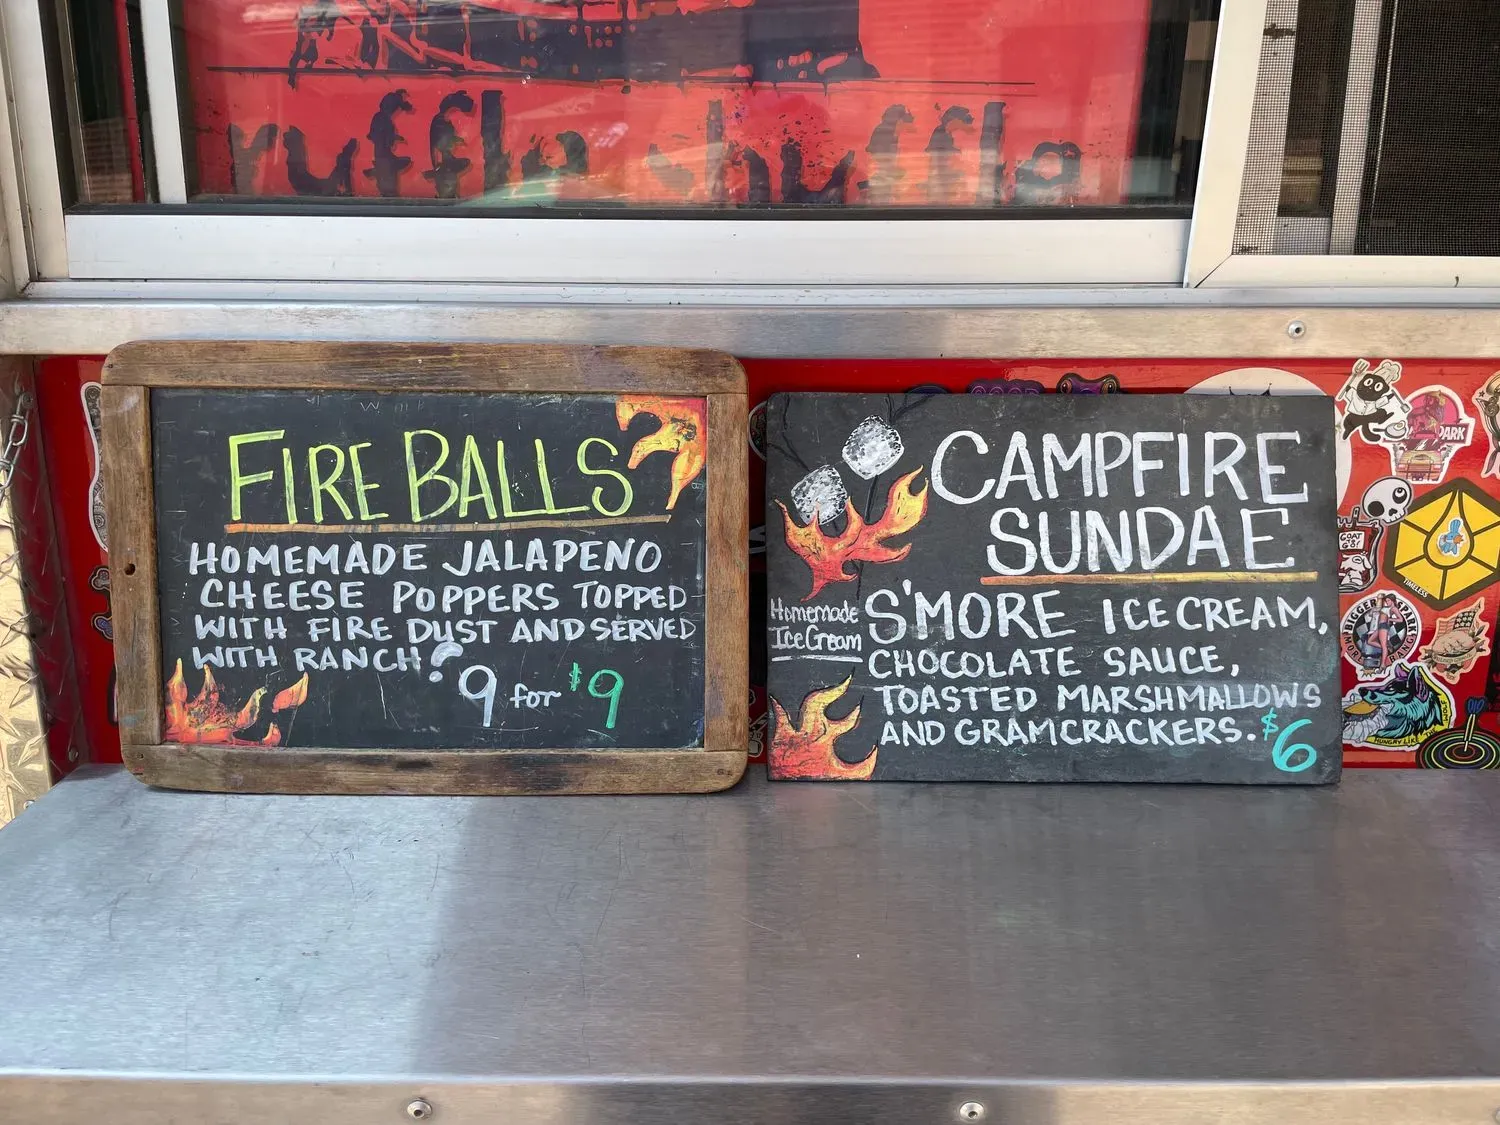 ruffle shuffle
FIRE BALLS
HOMEMADE JALAPENO
CHEESE POPPERS TOPPED
WITH FIRE DUST AND SERVED
WITH RANCH!
9 for $9
CAMPFIRE
SUNDAE
Homemade
Ice Cream
S'MORE ICE CREAM,
CHOCOLATE SAUCE,
TOASTED MARSHMALLOWS
AND GRAMCRACKERS. $6
PARK
GOAT
TIMELESS
BIGGER SPARK
MORE BANG
HUNGRY LIKE THE WOLF